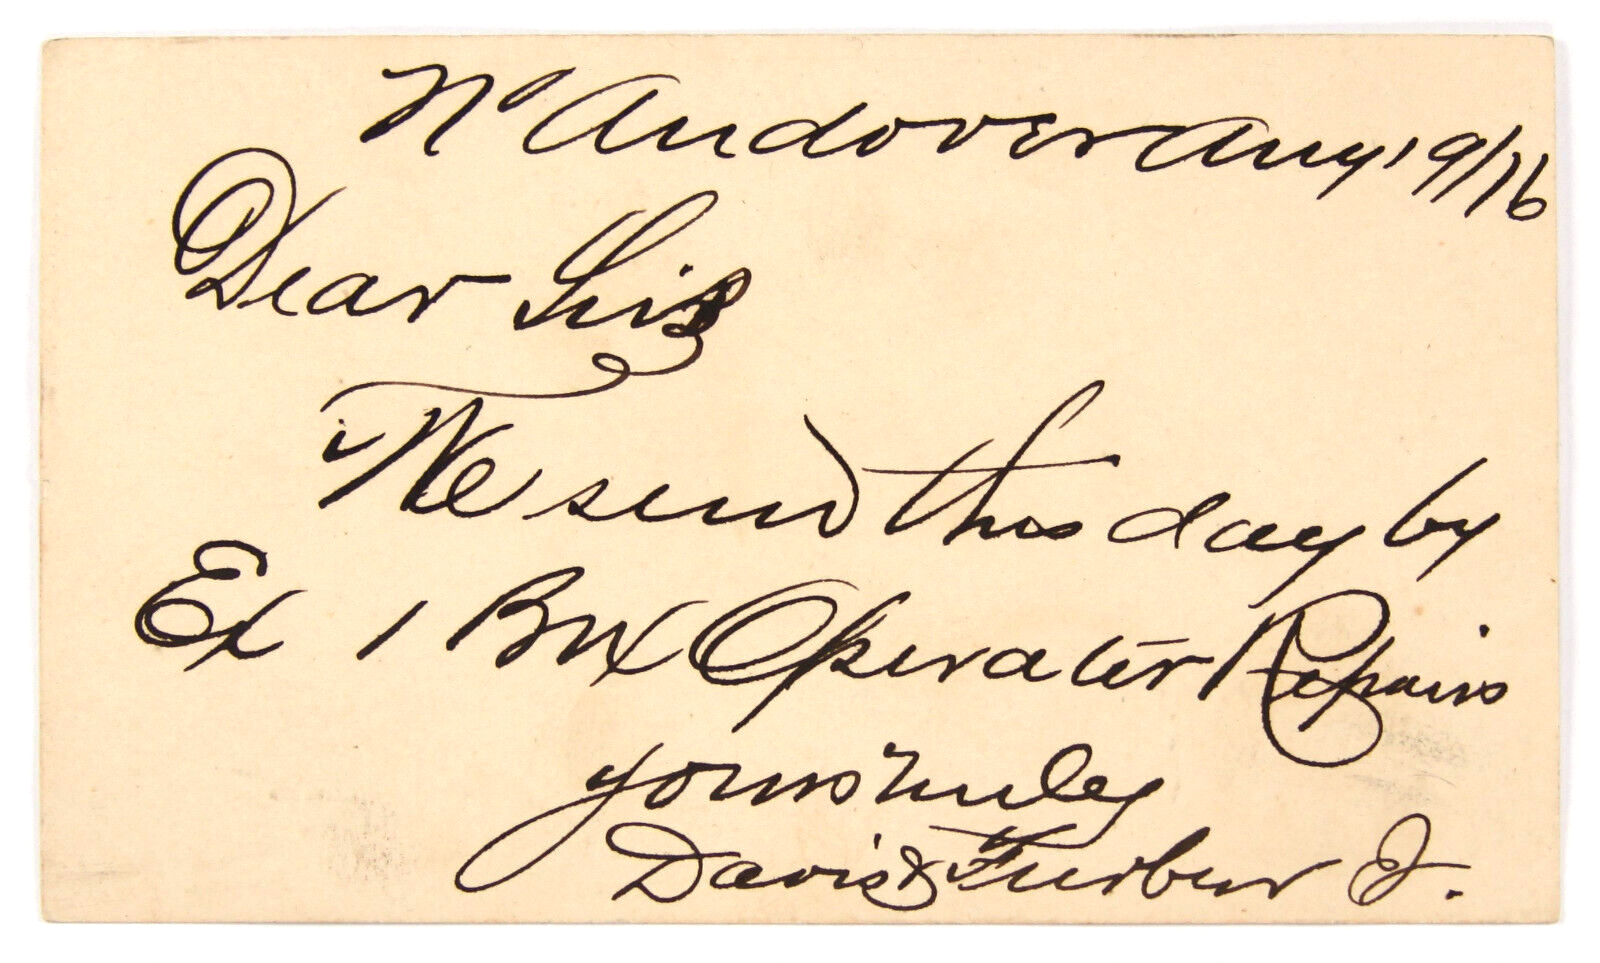 No Andover Aug 19/76
Dear Sir
We send this day by
Ex 1 Box Operator Repairs
yours truly
Davis & Furber